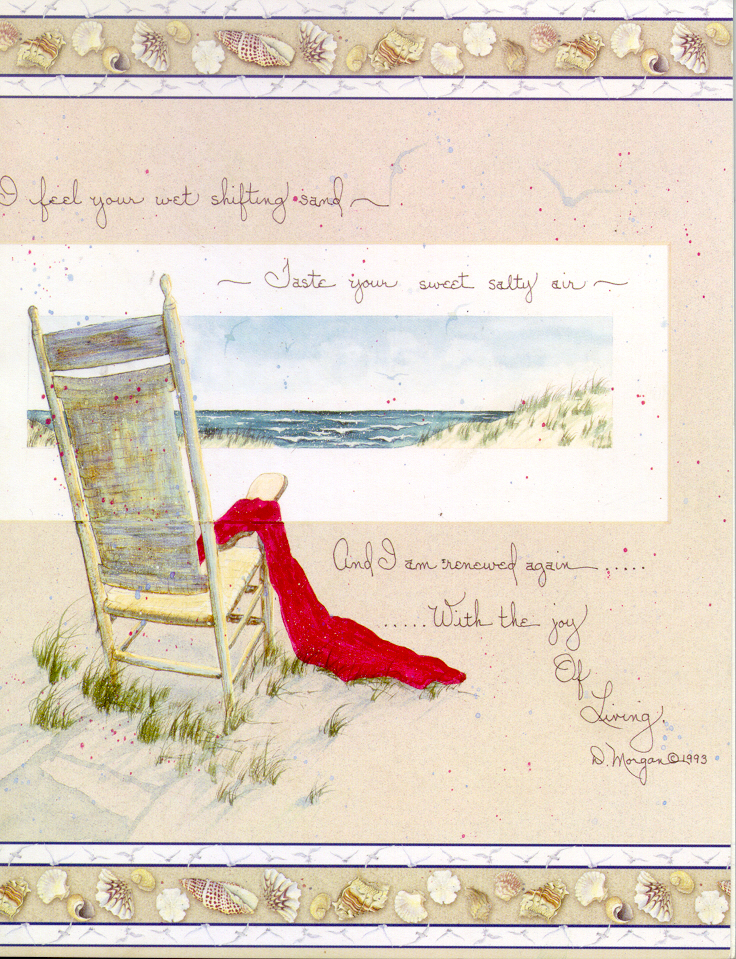 I feel your wet shifting sand ~
~ Taste your sweet salty air ~
And I am renewed again.....
.....With the joy
Of
Living.
D. Morgan © 1993